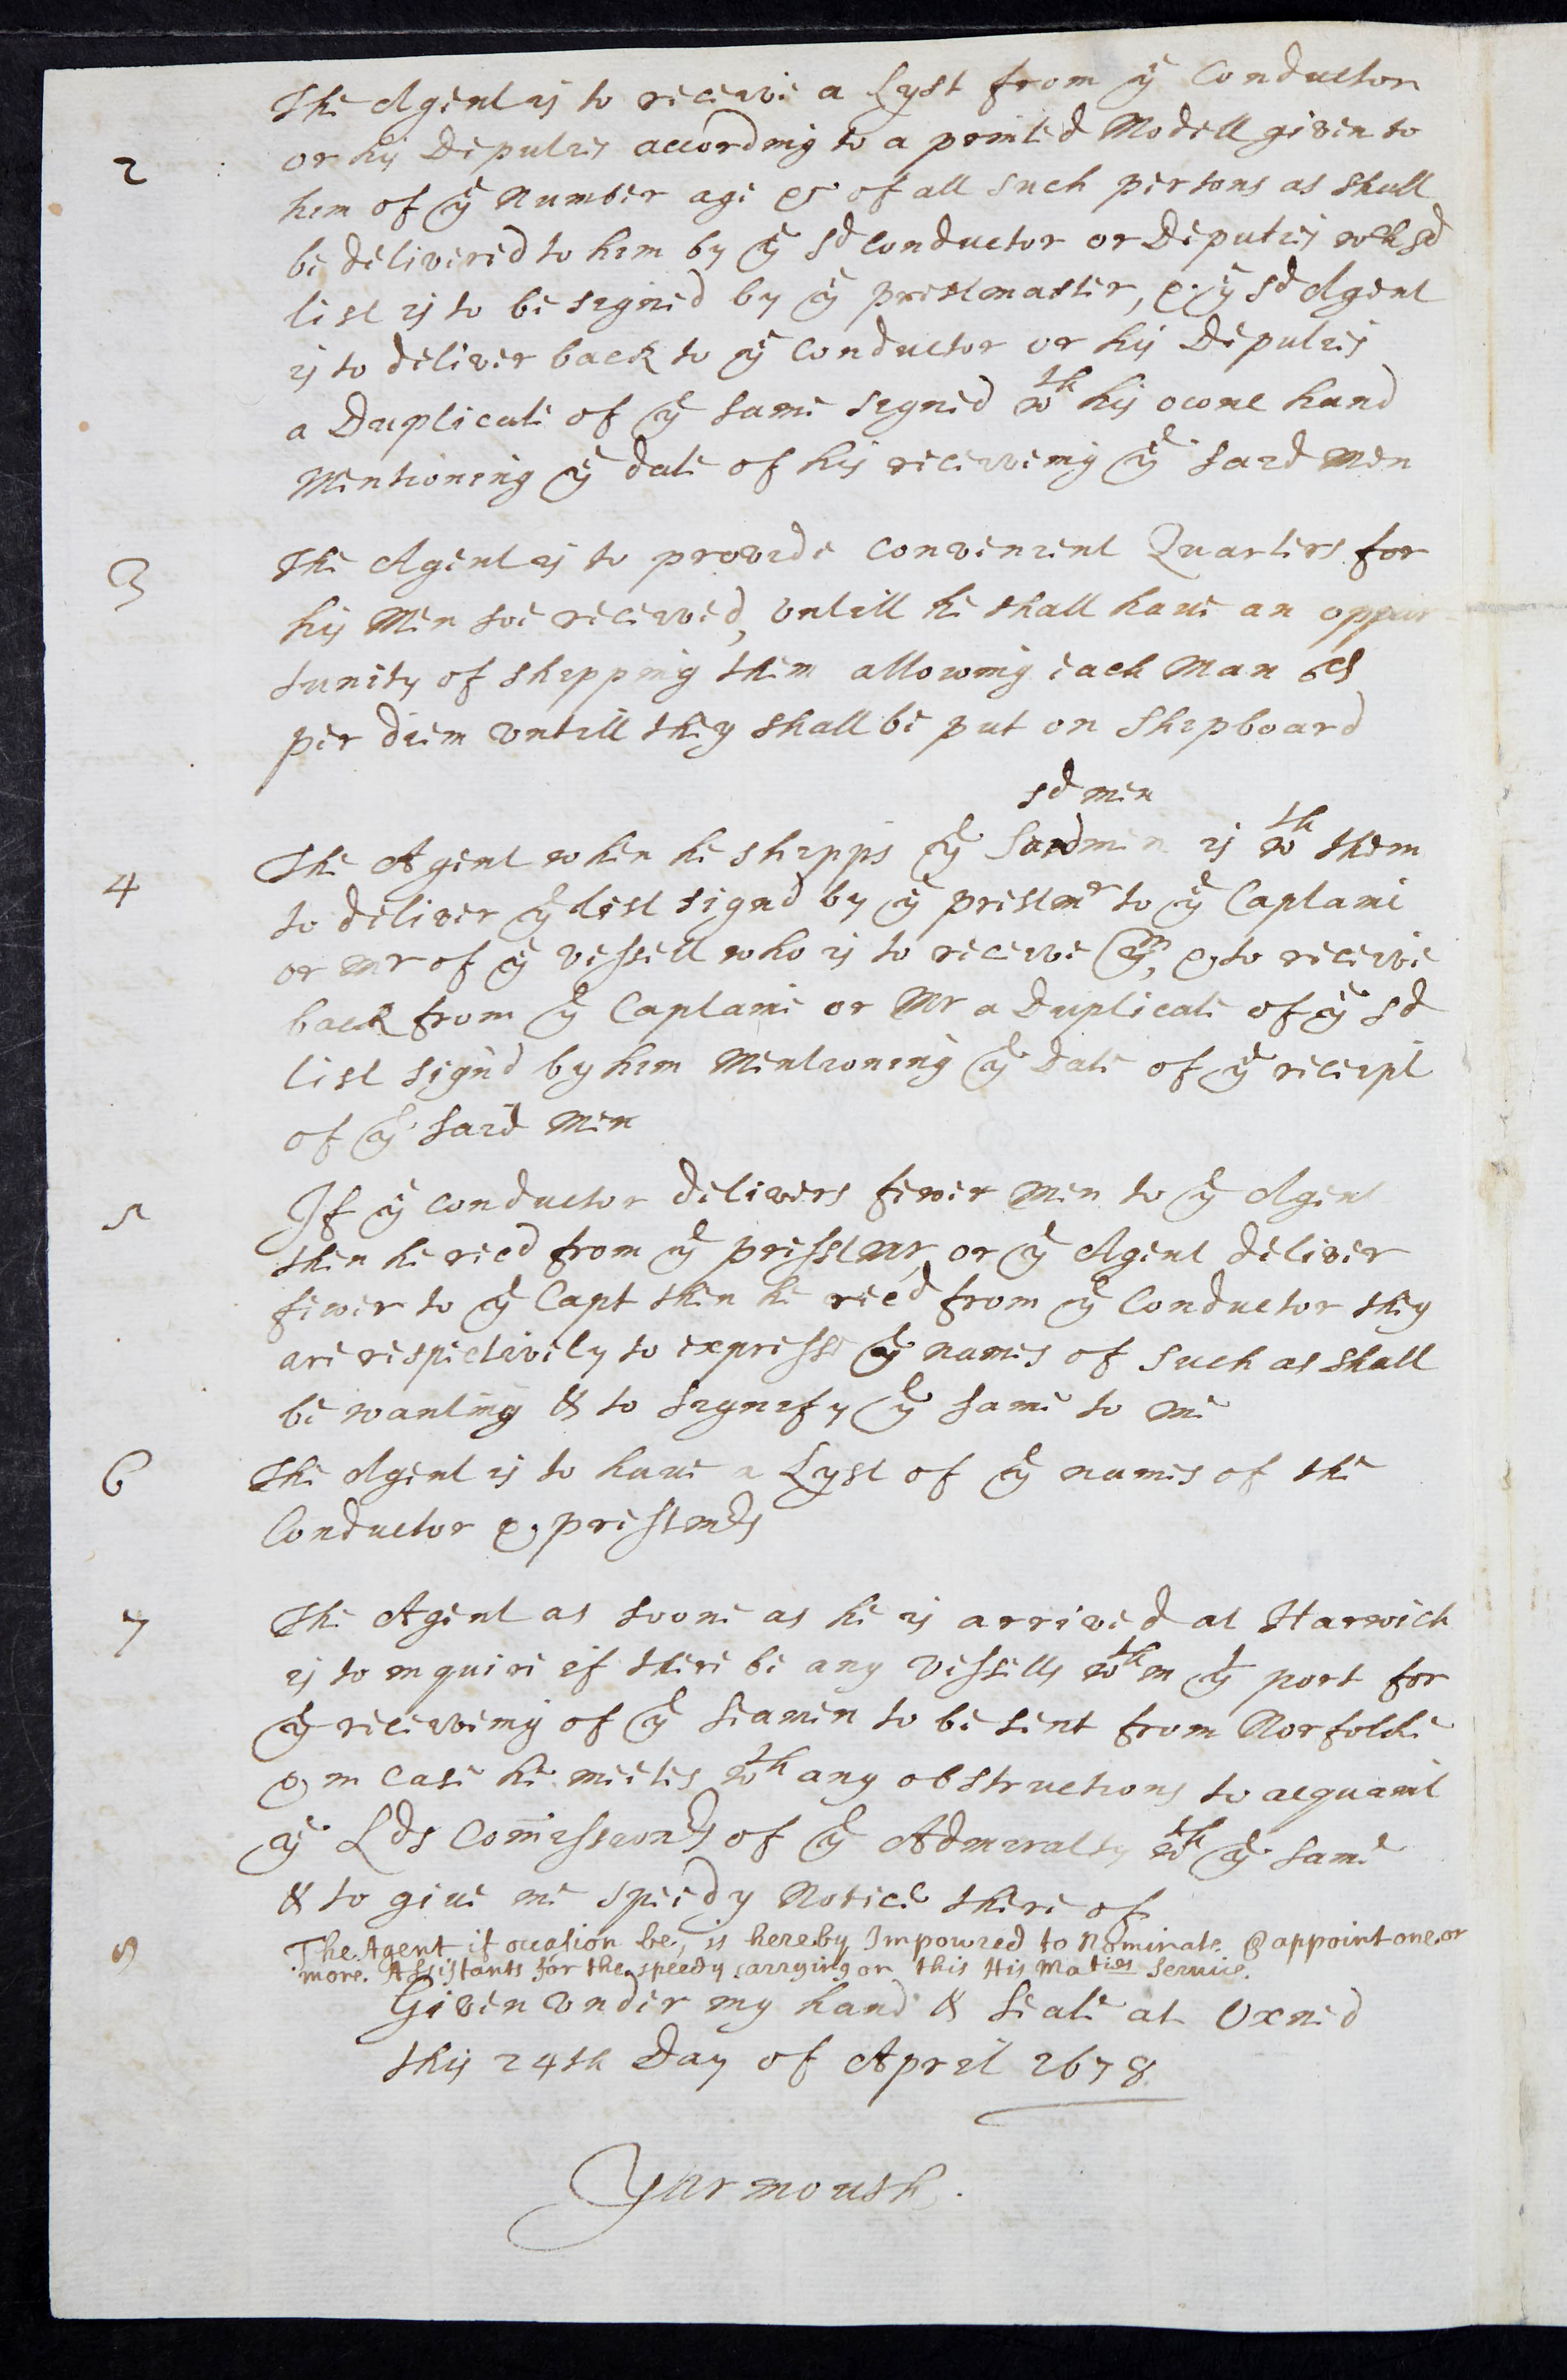 The Agent is to receive a Lyst from ye Conductor
2 or his Deputies according to a printed Modell given to
him of ye Number age &c of all such persons as shall
be delivered to him by ye sd Conductor or Deputies wch sd
list is to be signed by ye prestmaster, & ye sd Agent
is to deliver back to ye Conductor or his Deputies
a Duplicate of ye same signed wth his owne hand
Mentioning ye date of his receiveing ye said men
3 The Agent is to provide convenient Quarters for
his Men soe received, untill he shall have an oppur
tunity of shipping them allowing each Man 6d
per diem untill they shall be put on Shipboard
sd men
4 The Agent when he shipps ye said men is wth them
to deliver ye list signd by ye prestmr to ye Captaine
or Mr of ye vessell who is to receive ym, & to receive
back from ye Captaine or Mr a Duplicate of ye sd
list sign'd by him Mentioning ye Date of ye receipt
of ye said Men
5 If ye conductor delivers fewer Men to ye Agent
then he recd from ye presst Mr, or ye Agent deliver
fewer to ye Capt then he rec'd from ye Conductor they
are respectively to expresse ye names of such as shall
be wanting & to signify ye same to me
6 The Agent is to have a Lyst of ye names of the
Conductor & presstmrs
7 The Agent as soone as he is arrived at Harwich
is to inquire if there be any Vessells wthin ye port for
ye receiveing of ye seamen to be sent from Norfolke
& in case he meetes wth any obstructions to acquaint
ye Lds Com̄issionrs of ye Admiralty wth ye same
& to give me speedy Notice there of
8 The Agent if occasion be, is hereby Impowred to Nominate & appoint one or
more Assistants for the speedy carrying on this His Maties Service.
Given under my hand & seale at Oxned
this 24th Day of April 1678
Yarmouth.